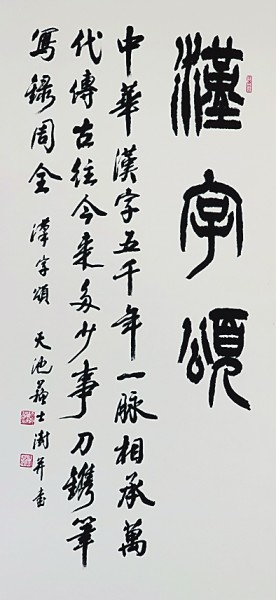 漢字頌
中華漢字五千年一脈相承萬
代傳古往今来多少事刀鐫筆
寫錄周全 漢字頌 天池蘇士澍并書